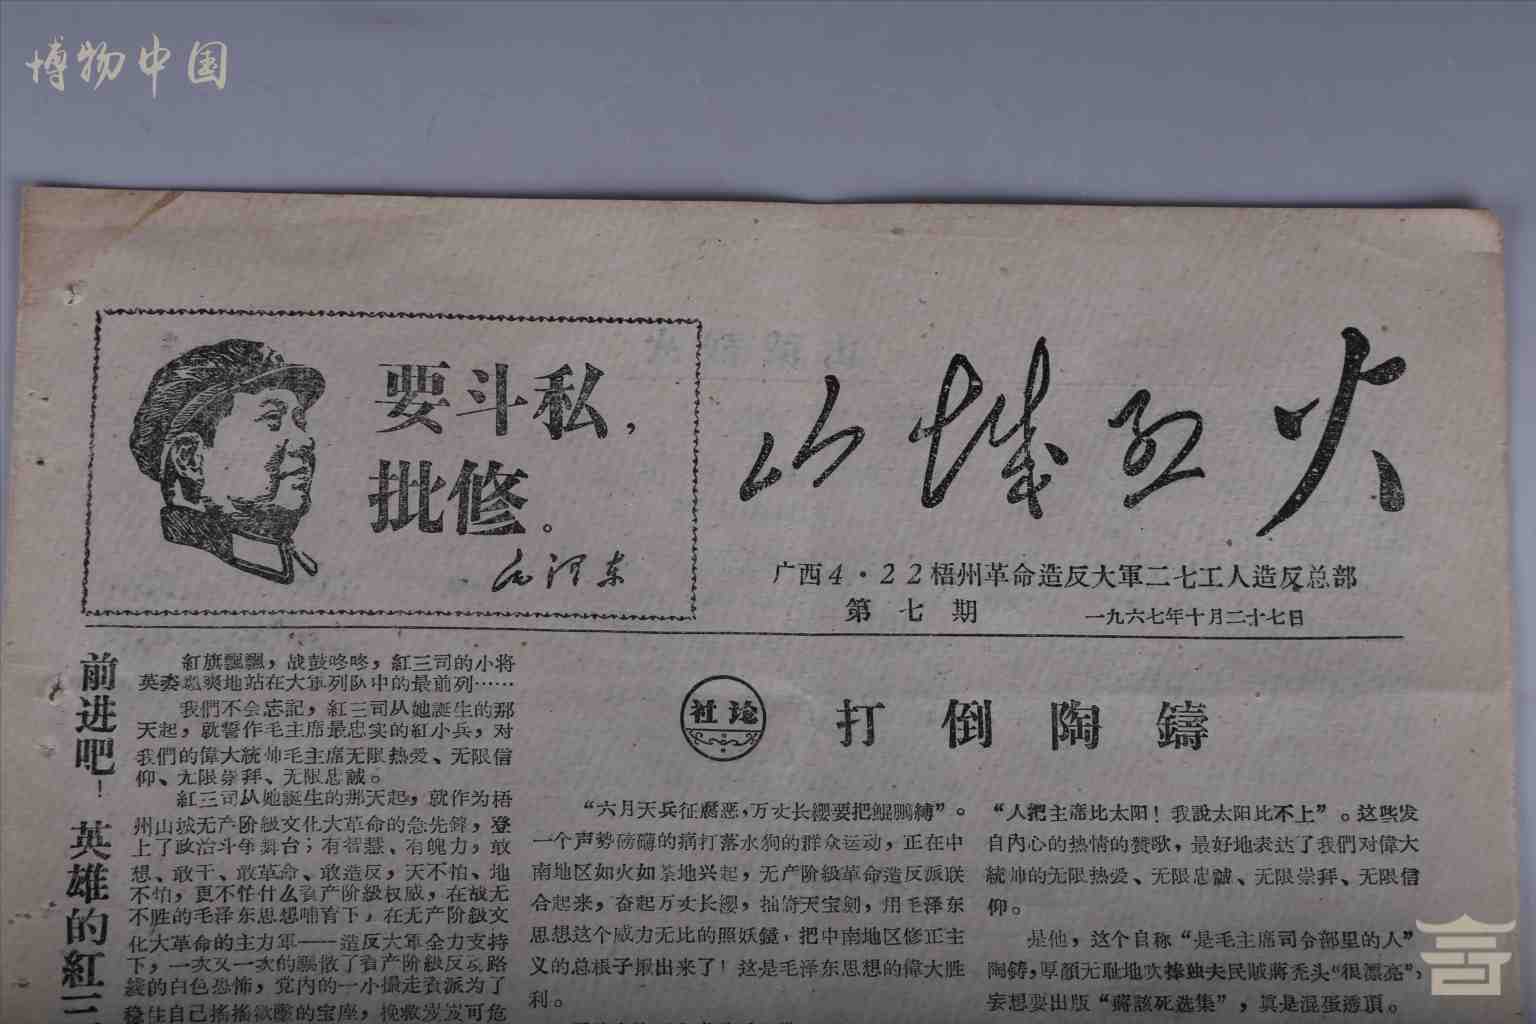 博物中国
要斗私，
批修。
毛泽东
山城烈火
广西4·22梧州革命造反大軍二七工人造反总部
第七期 一九六七年十月二十七日
前进吧！英雄的紅三
紅旗飄飄，战鼓咚咚，紅三司的小将
英姿颯爽地站在大軍列队中的最前列……
我們不会忘記，紅三司从她誕生的那
天起，就誓作毛主席最忠实的紅小兵，对
我們的偉大統帅毛主席无限热爱、无限信
仰、无限崇拜、无限忠誠。
紅三司从她誕生的那天起，就作为梧
州山城无产阶級文化大革命的急先鋒，登
上了政治斗争舞台；有智慧、有魄力，敢
想、敢干、敢革命、敢造反，天不怕、地
不怕，更不怕什么資产阶級权威，在战无
不胜的毛泽东思想哺育下，在无产阶級文
化大革命的主力軍——造反大軍全力支持
下，一次又一次的飄散了資产阶級反动路
綫的白色恐怖，党内的一小撮走資派为了
稳住自己搖搖欲墜的宝座，挽救岌岌可危
社论
打倒陶鑄
“六月天兵征腐恶，万丈长纓要把鯤鵬縛”。
一个声势磅礴的痛打落水狗的群众运动，正在中
南地区如火如荼地兴起，无产阶級革命造反派联
合起来，奋起万丈长纓，抽倚天宝剑，用毛泽东
思想这个威力无比的照妖鏡，把中南地区修正主
义的总根子揪出来了！这是毛泽东思想的偉大胜
利。
“人把主席比太阳！我說太阳比不上”。这些发
自内心的热情的赞歌，最好地表达了我們对偉大
統帅的无限热爱、无限忠誠、无限崇拜、无限信
仰。
是他，这个自称“是毛主席司令部里的人”
陶铸，厚顏无耻地吹捧独夫民賊蔣禿头“很漂亮”，
妄想要出版“蔣該死选集”，真是混蛋透頂。